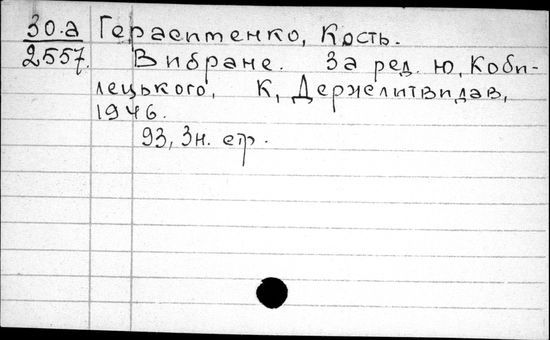 30.а Герасименко, Кость.
2557. Вибране. За ред. Ю, Коби-
лецького, К, Держлітвидав,
1946.
93, 3н. стр.